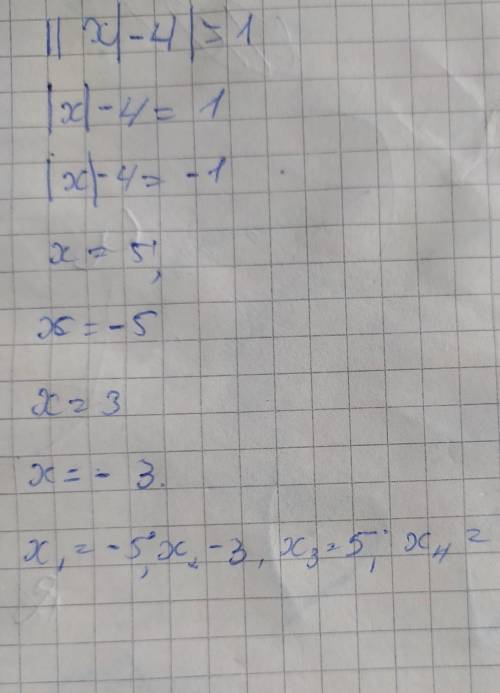 ||x|-4|=1
|x|-4= 1
|x|-4= -1
x = 5;
x = -5
x = 3
x = - 3.
x₁ = -5; x₂ -3, x₃ = 5; x₄ =